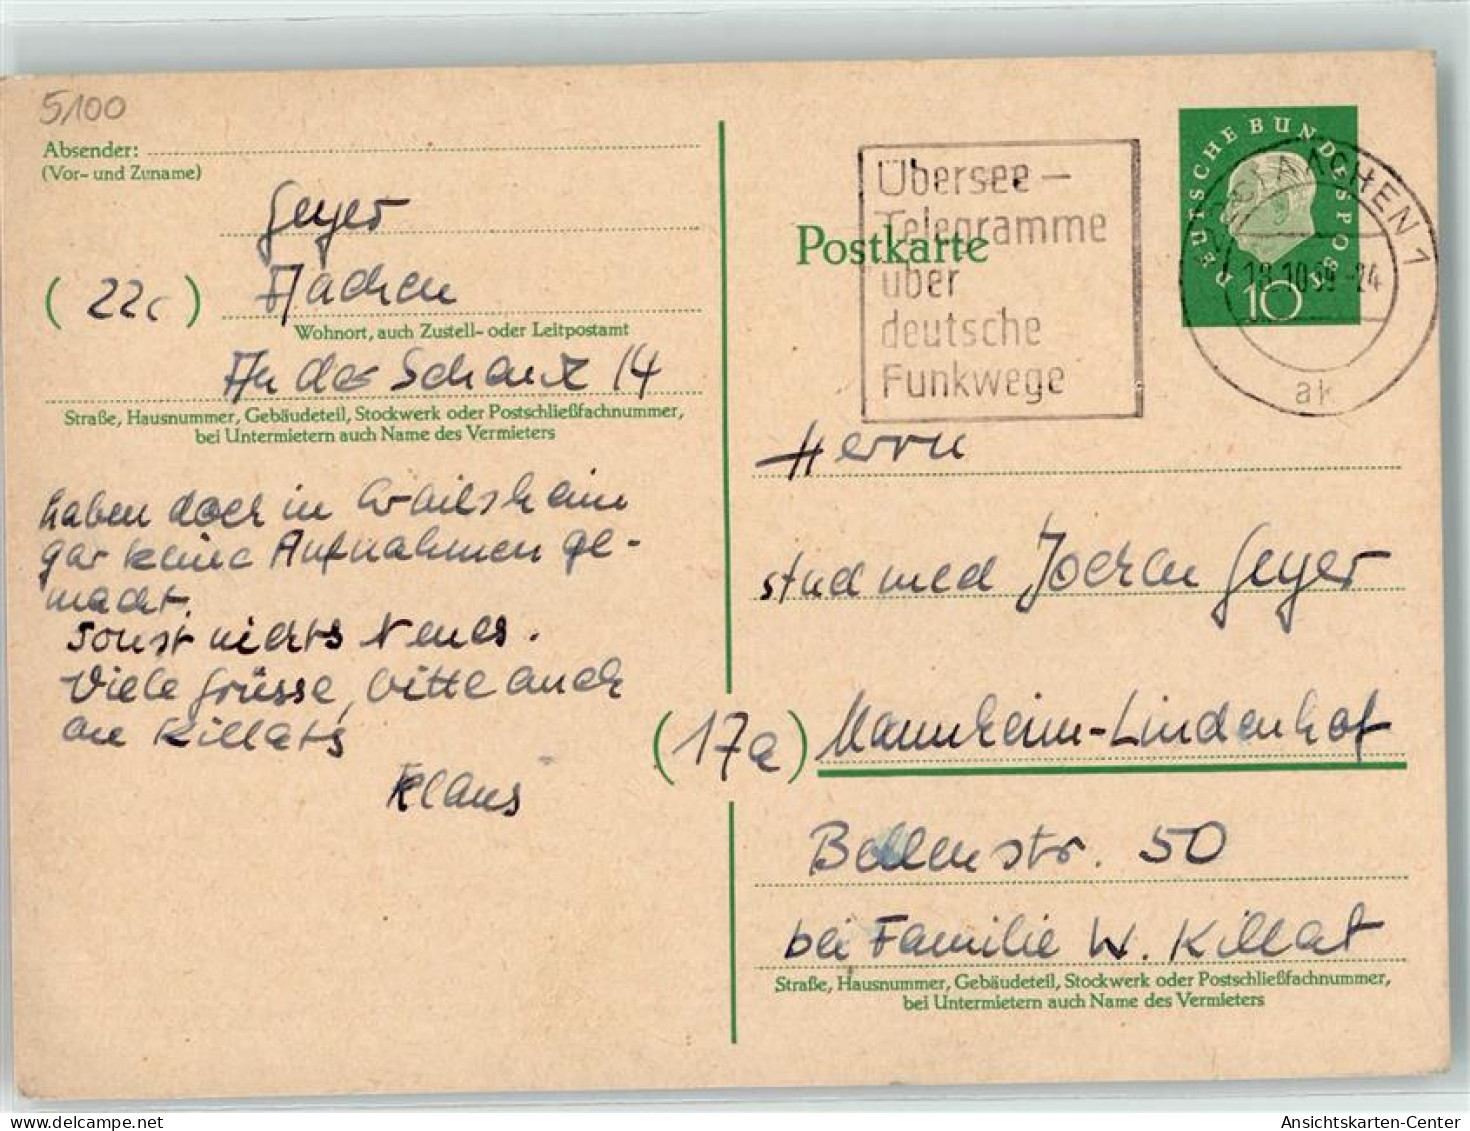 5/100
Absender:
(Vor- und Zuname)
Geyer
(22c) Aachen
Wohnort, auch Zustell- oder Leitpostamt
An der Schanz 14
Straße, Hausnummer, Gebäudeteil, Stockwerk oder Postschließfachnummer,
bei Untermietern auch Name des Vermieters
haben doch in Crailsheim
gar keine Aufnahmen ge-
macht.
Sonst nichts Neues.
Viele Grüsse, bitte auch
an Killats
Klaus
Übersee-
Telegramme
über
deutsche
Funkwege
Postkarte
DEUTSCHE BUNDESPOST
10
AACHEN 1
10.59-24
ak
Herrn
stud med Jochen Geyer
(17a) Mannheim-Lindenhof
Bellenstr. 50
bei Familie W. Killat
Straße, Hausnummer, Gebäudeteil, Stockwerk oder Postschließfachnummer,
bei Untermietern auch Name des Vermieters
Ansichtskarten-Center